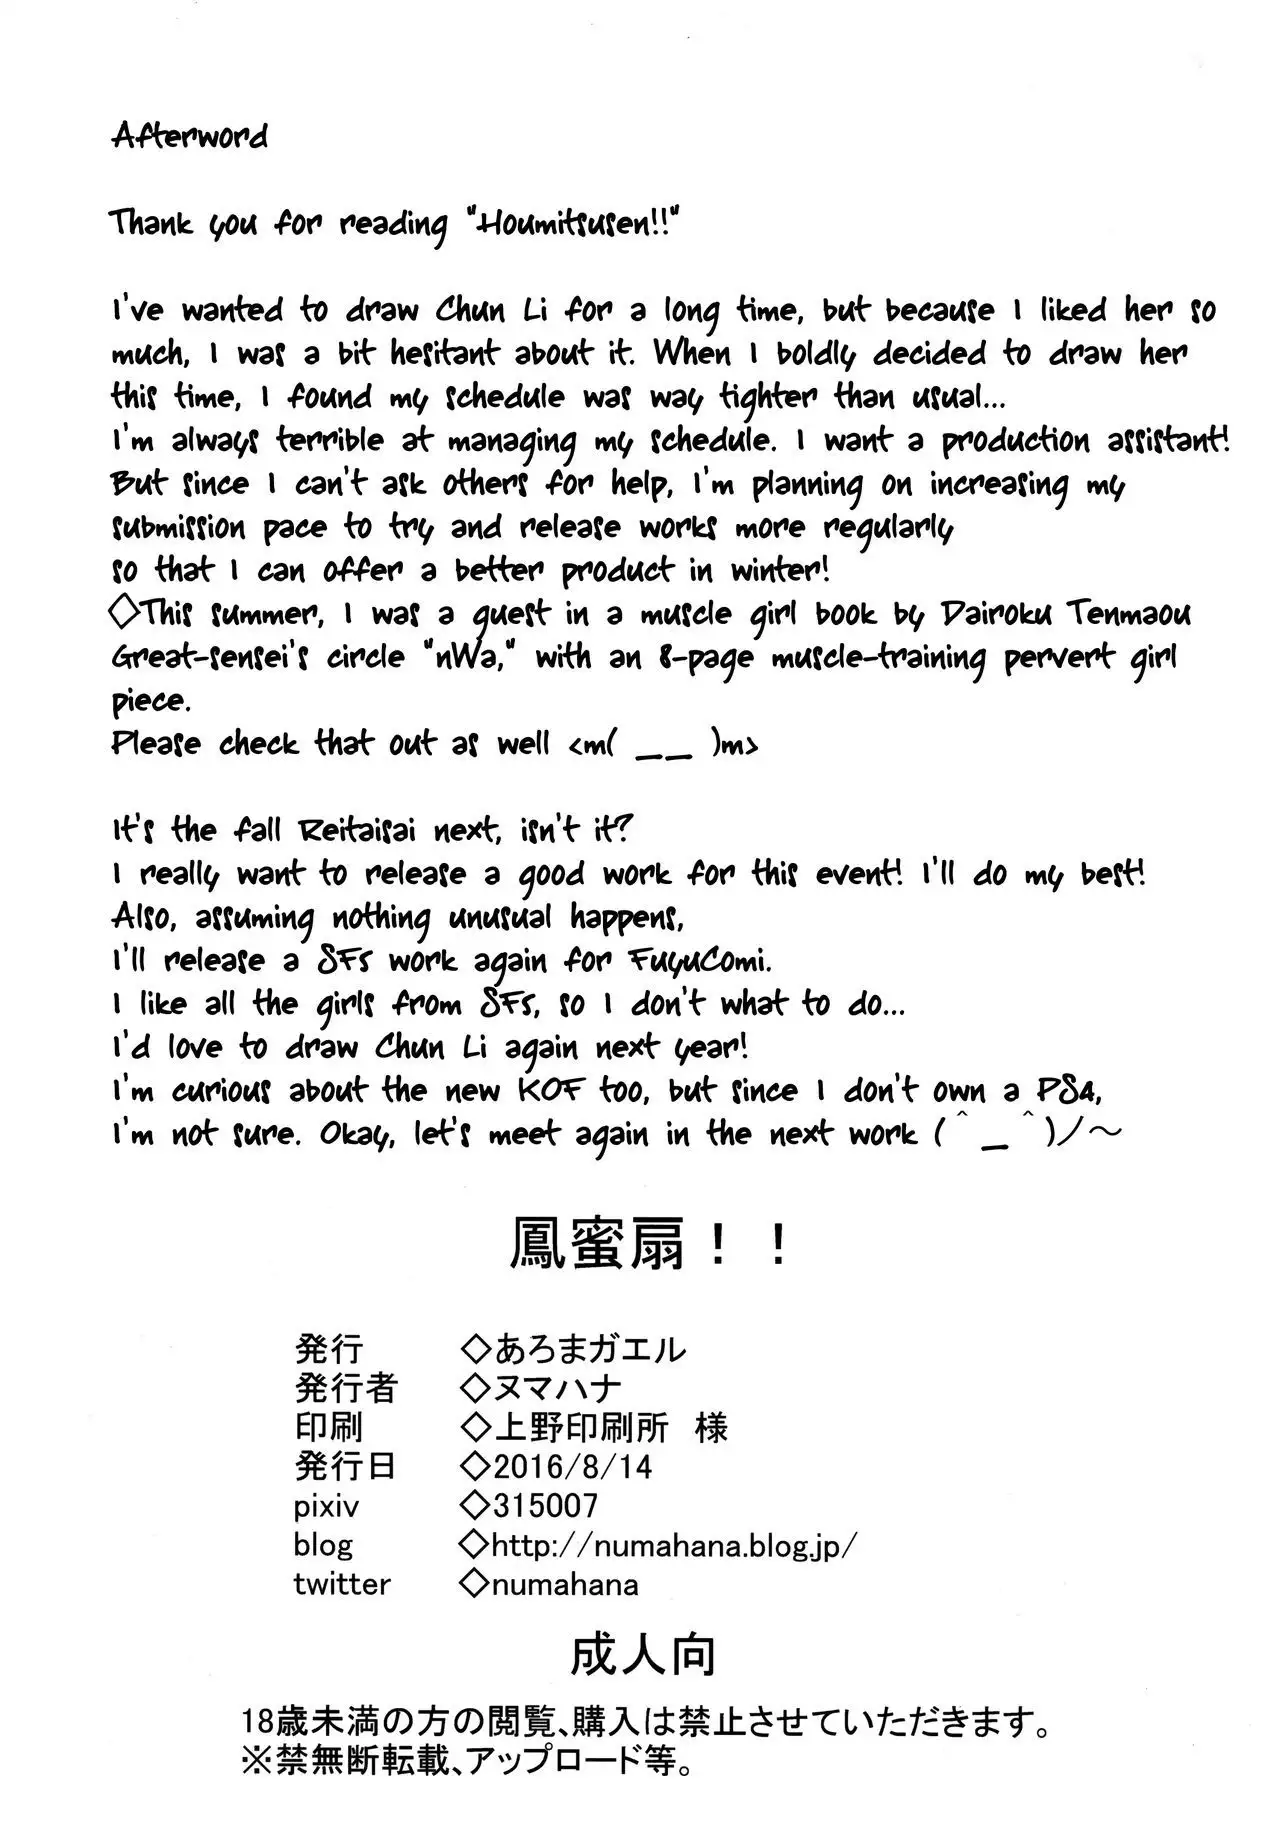 Afterword
Thank you for reading "Houmitsusen!!"
I've wanted to draw Chun Li for a long time, but because I liked her so
much, I was a bit hesitant about it. When I boldly decided to draw her
this time, I found my schedule was way tighter than usual...
I'm always terrible at managing my schedule. I want a production assistant!
But since I can't ask others for help, I'm planning on increasing my
submission pace to try and release works more regularly
so that I can offer a better product in winter!
◇This summer, I was a guest in a muscle girl book by Dairoku Tenmaou
Great-sensei's circle "nWa," with an 8-page muscle-training pervert girl
piece.
Please check that out as well <m( __ )m>
It's the fall Reitaisai next, isn't it?
I really want to release a good work for this event! I'll do my best!
Also, assuming nothing unusual happens,
I'll release a SF5 work again for FuyuComi.
I like all the girls from SF5, so I don't what to do...
I'd love to draw Chun Li again next year!
I'm curious about the new KOF too, but since I don't own a PS4,
I'm not sure. Okay, let's meet again in the next work (＾_＾)ノ～
鳳蜜扇！！
発行 ◇あろまガエル
発行者 ◇ヌマハナ
印刷 ◇上野印刷所 様
発行日 ◇2016/8/14
pixiv ◇315007
blog ◇http://numahana.blog.jp/
twitter ◇numahana
成人向
18歳未満の方の閲覧、購入は禁止させていただきます。
※禁無断転載、アップロード等。